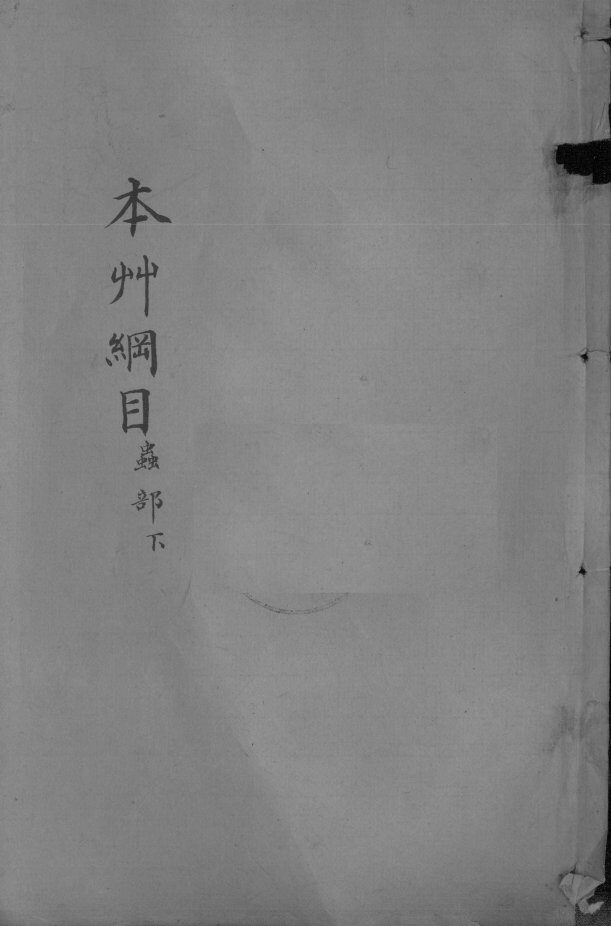 本艸綱目
蟲部下